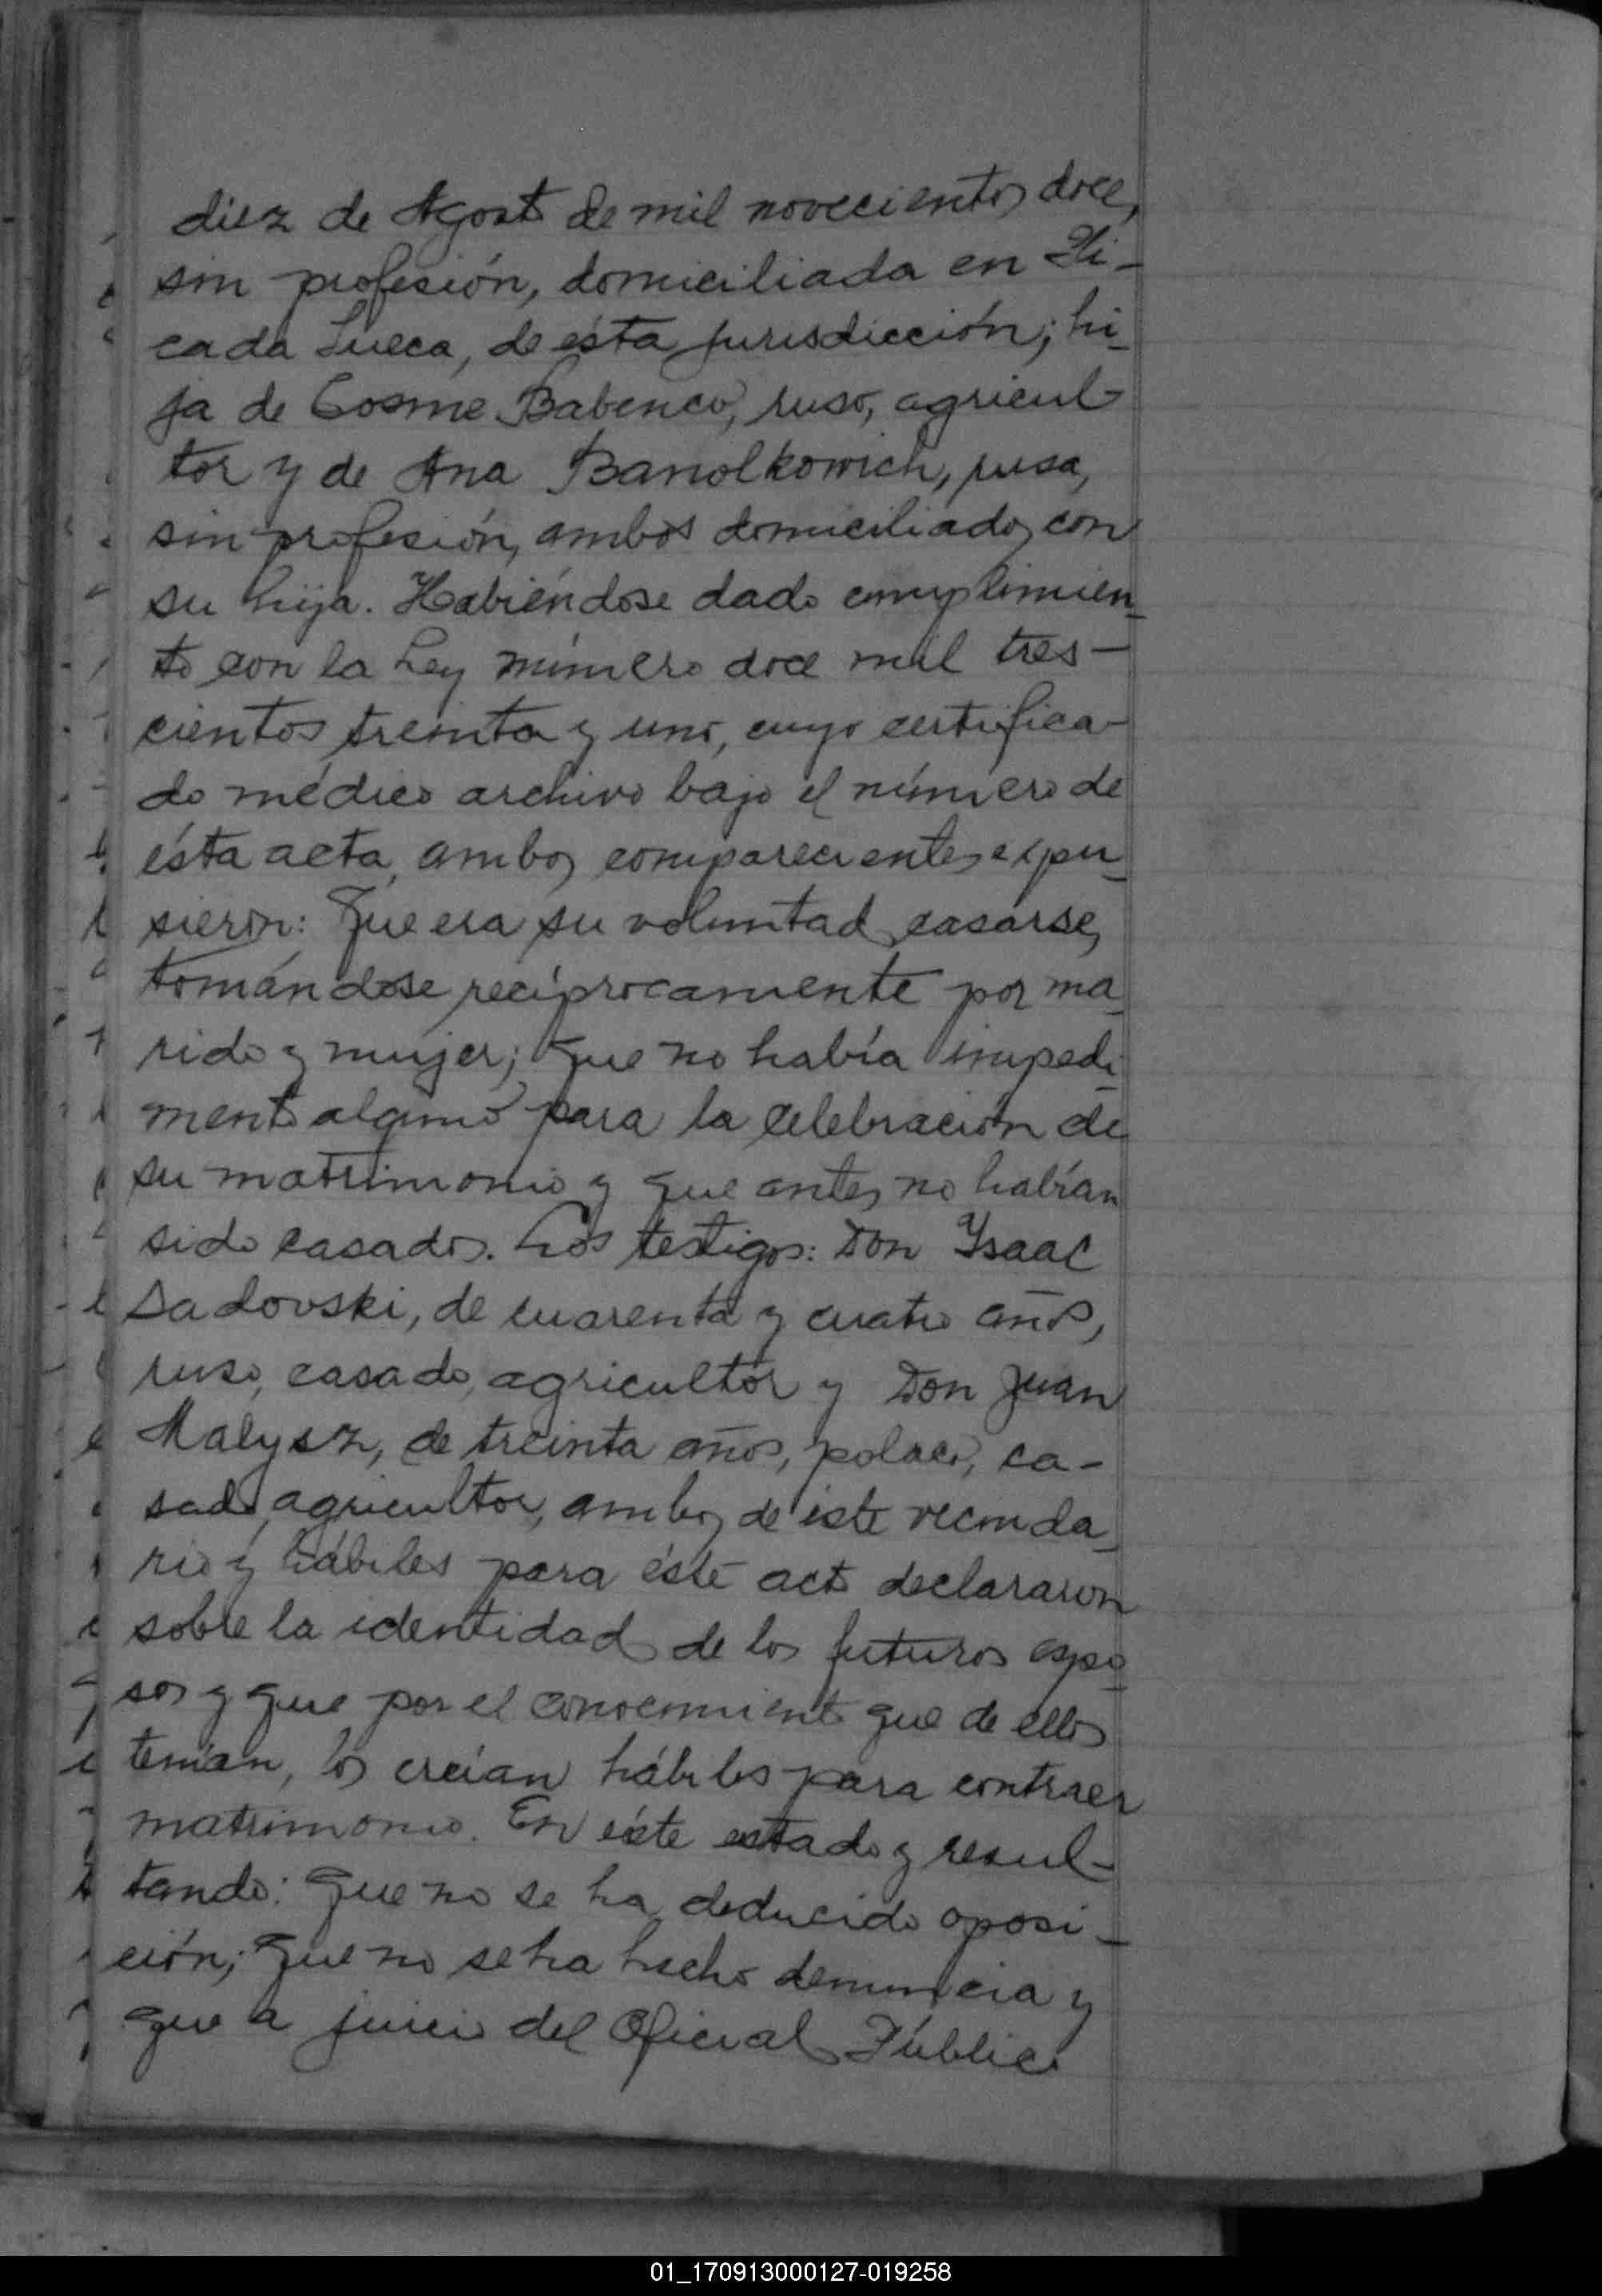 diez de Agosto de mil novecientos doce,
sin profesión, domiciliada en Pi-
cada Sueca, de ésta jurisdicción; hi-
ja de Cosme Babenco, ruso, agricul-
tor y de Ana Banolkowich, rusa,
sin profesión, ambos domiciliados con
su hija. Habiéndose dado cumplimien-
to con la Ley número doce mil tres-
cientos treinta y uno, cuyo certifica-
do médico archivo bajo el número de
ésta acta, ambos comparecientes expu-
sieron: Que era su voluntad casarse,
tomándose recíprocamente por ma-
rido y mujer; que no había impedi-
mento alguno para la celebración de
su matrimonio y que antes no habían
sido casados. Los testigos: Don Ysaac
Sadovski, de cuarenta y cuatro años,
ruso, casado, agricultor y Don Juan
Malysz, de treinta años, polaco, ca-
sado, agricultor, ambos de éste vecinda-
rio y hábiles para éste acto declararon
sobre la identidad de los futuros espo-
sos y que por el conocimiento que de ellos
tenían, los creían hábiles para contraer
matrimonio. En éste estado y resul-
tando: Que no se ha deducido oposi-
ción; que no se ha hecho denuncia y
que a juicio del Oficial Público
01_170913000127-019258